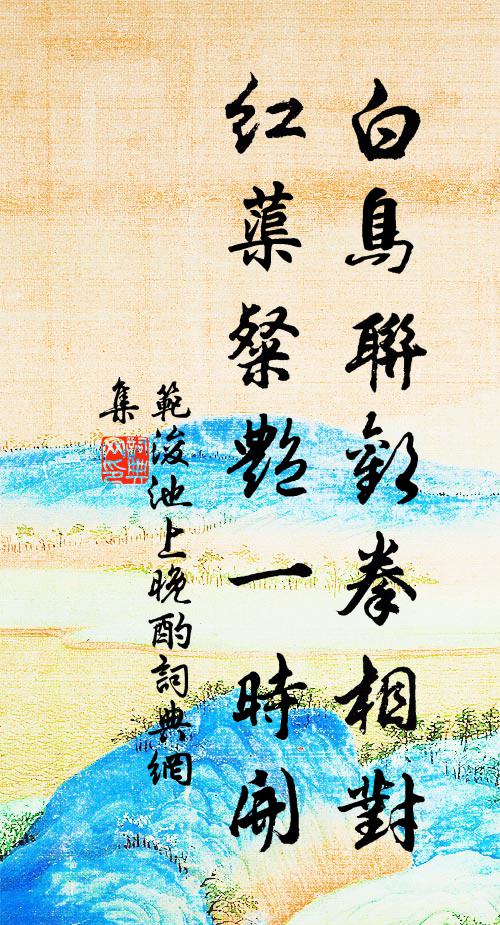 白鳥聯歡拳相對
紅蕖粲艷一時開
範浚池上晚酌詞典網
集